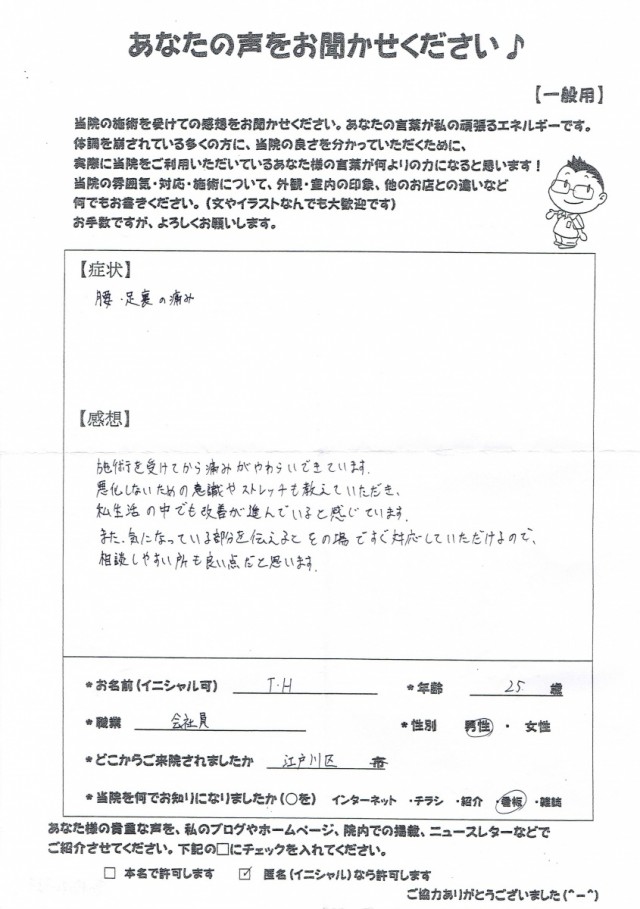 あなたの声をお聞かせください♪
【一般用】
当院の施術を受けての感想をお聞かせください。あなたの言葉が私の頑張るエネルギーです。
体調を崩されている多くの方に、当院の良さを分かっていただくために、
実際に当院をご利用いただいているあなた様の言葉が何よりの力になると思います！
当院の雰囲気・対応・施術について、外観・室内の印象、他のお店との違いなど
何でもお書きください。（文やイラストなんでも大歓迎です）
お手数ですが、よろしくお願いします。
【症状】
腰・足裏の痛み
【感想】
施術を受けてから痛みがやわらいできています。
悪化しないための意識やストレッチも教えていただき、
私生活の中でも改善が進んでいると感じています。
また、気になっている部分を伝えるとその場ですぐ対応していただけるので、
相談しやすい所も良い点だと思います。
*お名前（イニシャル可） T・H *年齢 25 歳
*職業 会社員 *性別 男性 ・ 女性
*どこからご来院されましたか 江戸川区 市
*当院を何でお知りになりましたか（○を） インターネット ・チラシ ・紹介 ・看板 ・雑誌
あなた様の貴重な声を、私のブログやホームページ、院内での掲載、ニュースレターなどで
ご紹介させてください。下記の□にチェックを入れてください。
□ 本名で許可します ☑ 匿名（イニシャル）なら許可します
ご協力ありがとうございました（^－^）